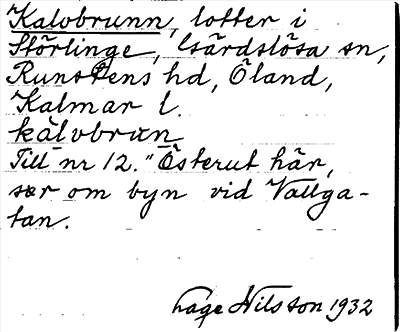 Kalvbrunn, lotter i
Störlinge, Gärdslösa sn,
Runstens hd, Öland,
Kalmar l.
kàlvbrun
Till nr 12. "Österut här,
sær om byn vid Vallga-
tan.
Lage Nilsson 1932